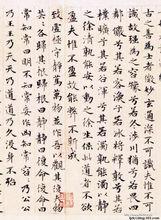 古之善為士者微妙玄通深不可識夫唯不可
識故強為之容豫兮若冬涉川猶兮若畏四
鄰儼兮其若客渙兮若冰將釋敦兮其若
樸曠兮其若谷渾兮其若濁孰能濁以靜
之徐清孰能安以久動之徐生保此道者不欲
盈夫惟不盈故能敝不新成
致虛極守靜篤萬物並作吾以觀其復夫物芸
芸各歸其根歸根曰靜靜曰復命復命曰常
知常曰明不知常妄作凶知常容容乃公公
乃王王乃天天乃道道乃久沒身不殆